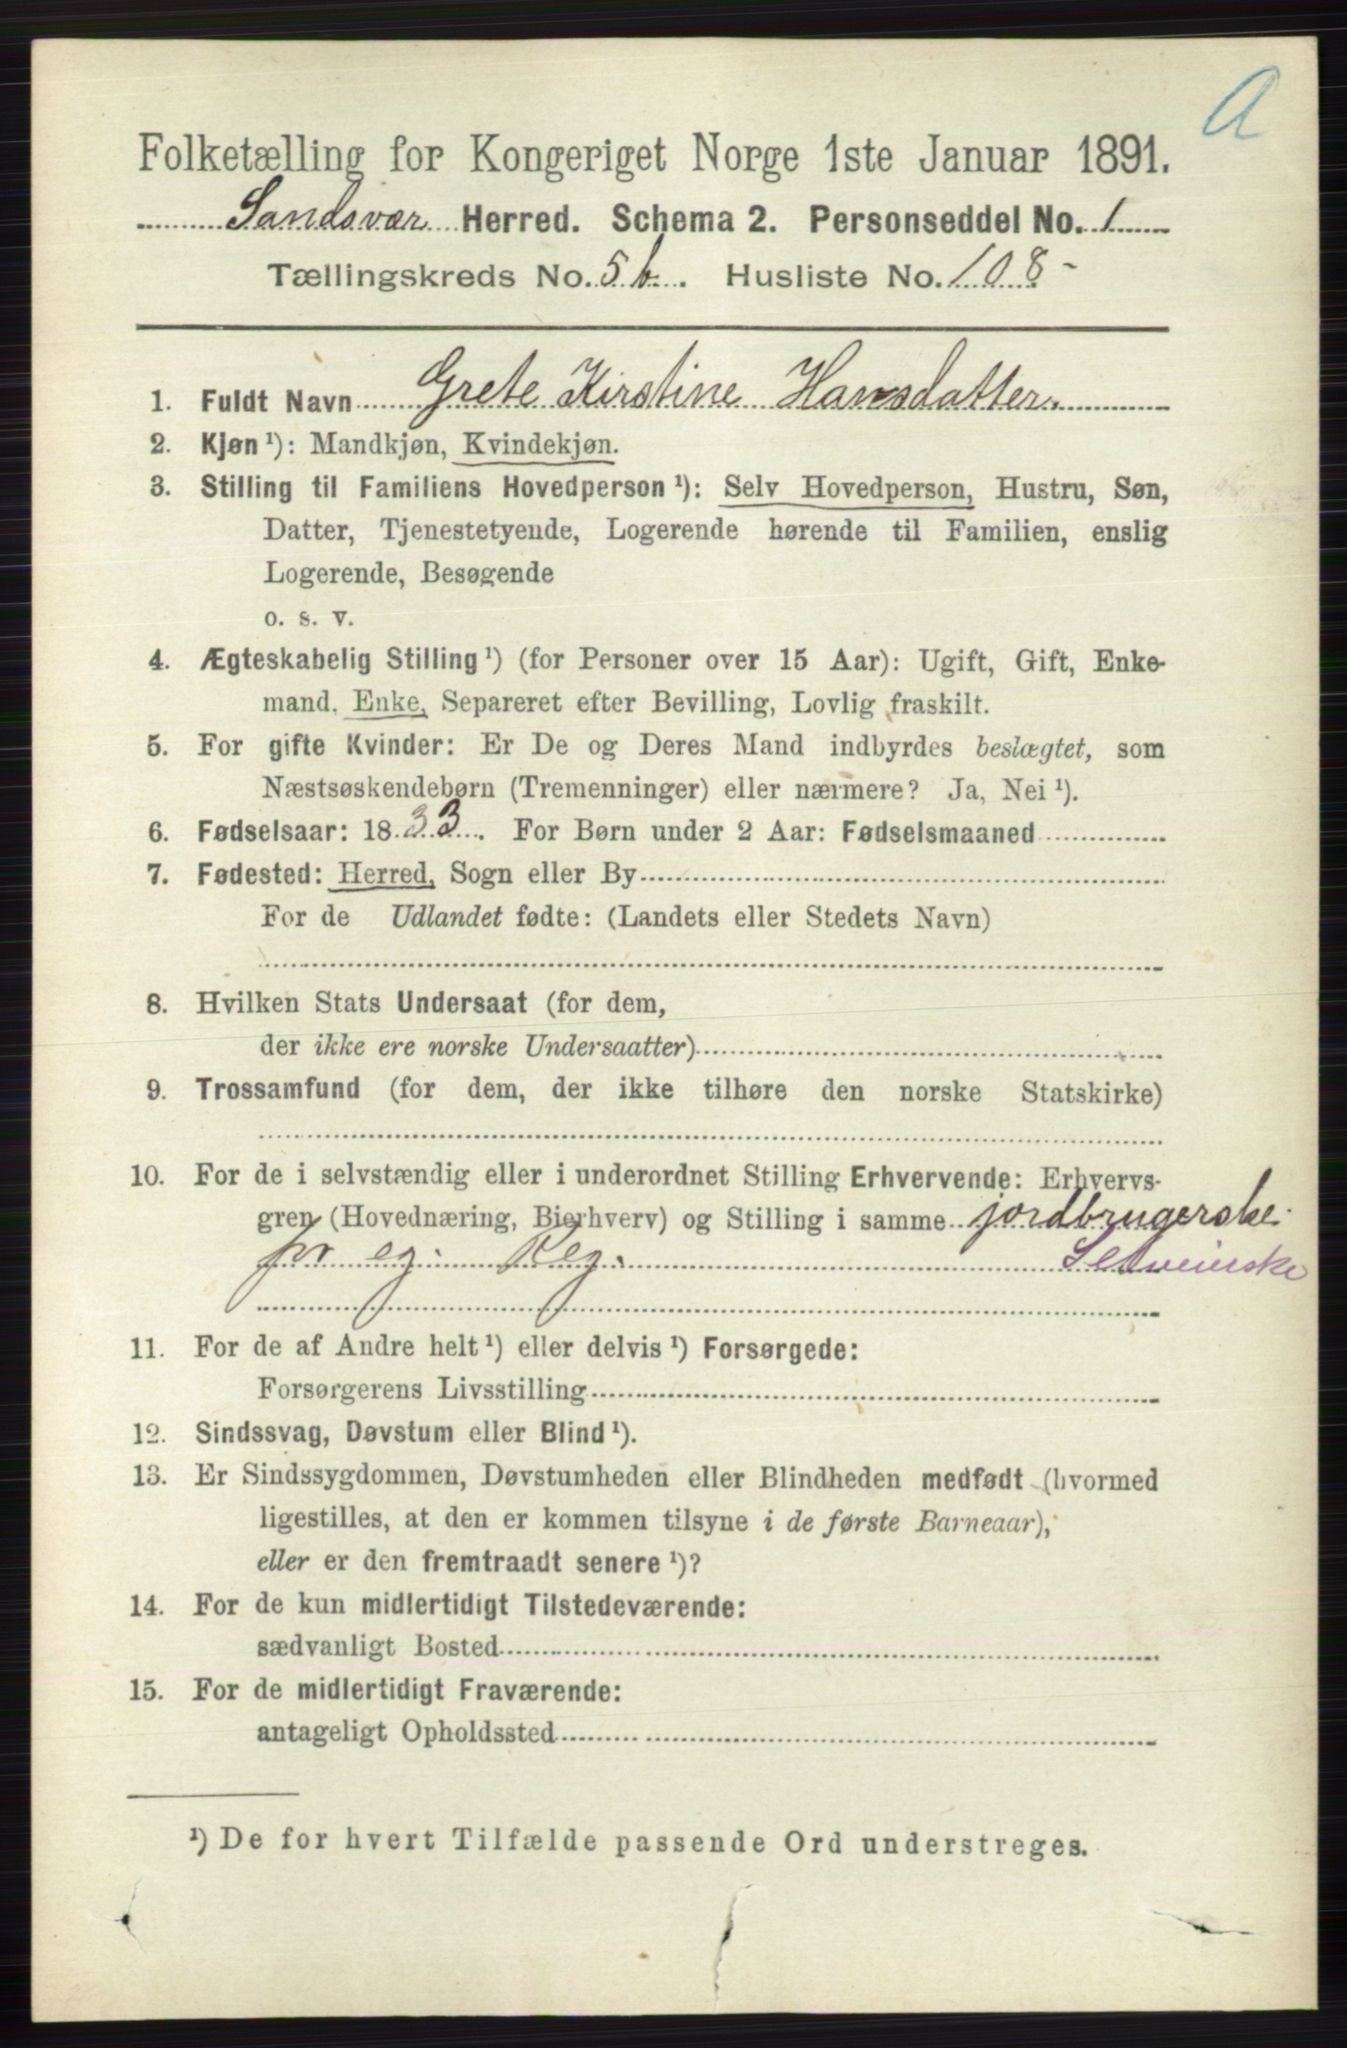 A
Folketælling for Kongeriget Norge 1ste Januar 1891.
Sandsvær Herred. Schema 2. Personseddel No. 1
Tællingskreds No. 5b. Husliste No. 108-
1. Fuldt Navn Grete Kirstine Hansdatter.
2. Kjøn ¹): Mandkjøn, Kvindekjøn.
3. Stilling til Familiens Hovedperson ¹): Selv Hovedperson, Hustru, Søn,
Datter, Tjenestetyende, Logerende hørende til Familien, enslig
Logerende, Besøgende
o. s. v.
4. Ægteskabelig Stilling ¹) (for Personer over 15 Aar): Ugift, Gift, Enke-
mand, Enke, Separeret efter Bevilling, Lovlig fraskilt.
5. For gifte Kvinder: Er De og Deres Mand indbyrdes beslægtet, som
Næstsøskendebørn (Tremenninger) eller nærmere? Ja, Nei ¹).
6. Fødselsaar: 1833. For Børn under 2 Aar: Fødselsmaaned
7. Fødested: Herred, Sogn eller By
For de Udlandet fødte: (Landets eller Stedets Navn)
8. Hvilken Stats Undersaat (for dem,
der ikke ere norske Undersaatter)
9. Trossamfund (for dem, der ikke tilhøre den norske Statskirke)
10. For de i selvstændig eller i underordnet Stilling Erhvervende: Erhvervs-
gren (Hovednæring, Bierhverv) og Stilling i samme jordbrugerske
for eg. Reg. Selveierske
11. For de af Andre helt ¹) eller delvis ¹) Forsørgede:
Forsørgerens Livsstilling
12. Sindssvag, Døvstum eller Blind ¹).
13. Er Sindssygdommen, Døvstumheden eller Blindheden medfødt (hvormed
ligestilles, at den er kommen tilsyne i de første Barneaar),
eller er den fremtraadt senere ¹)?
14. For de kun midlertidigt Tilstedeværende:
sædvanligt Bosted
15. For de midlertidigt Fraværende:
antageligt Opholdssted
¹) De for hvert Tilfælde passende Ord understreges.